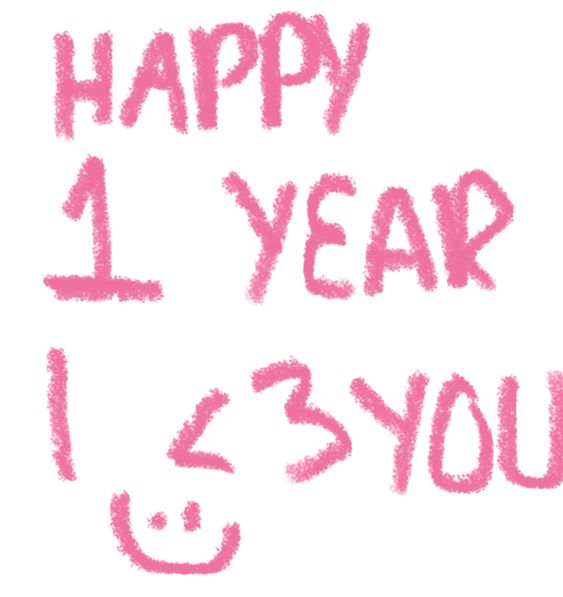 HAPPY
1 YEAR
I <3 YOU